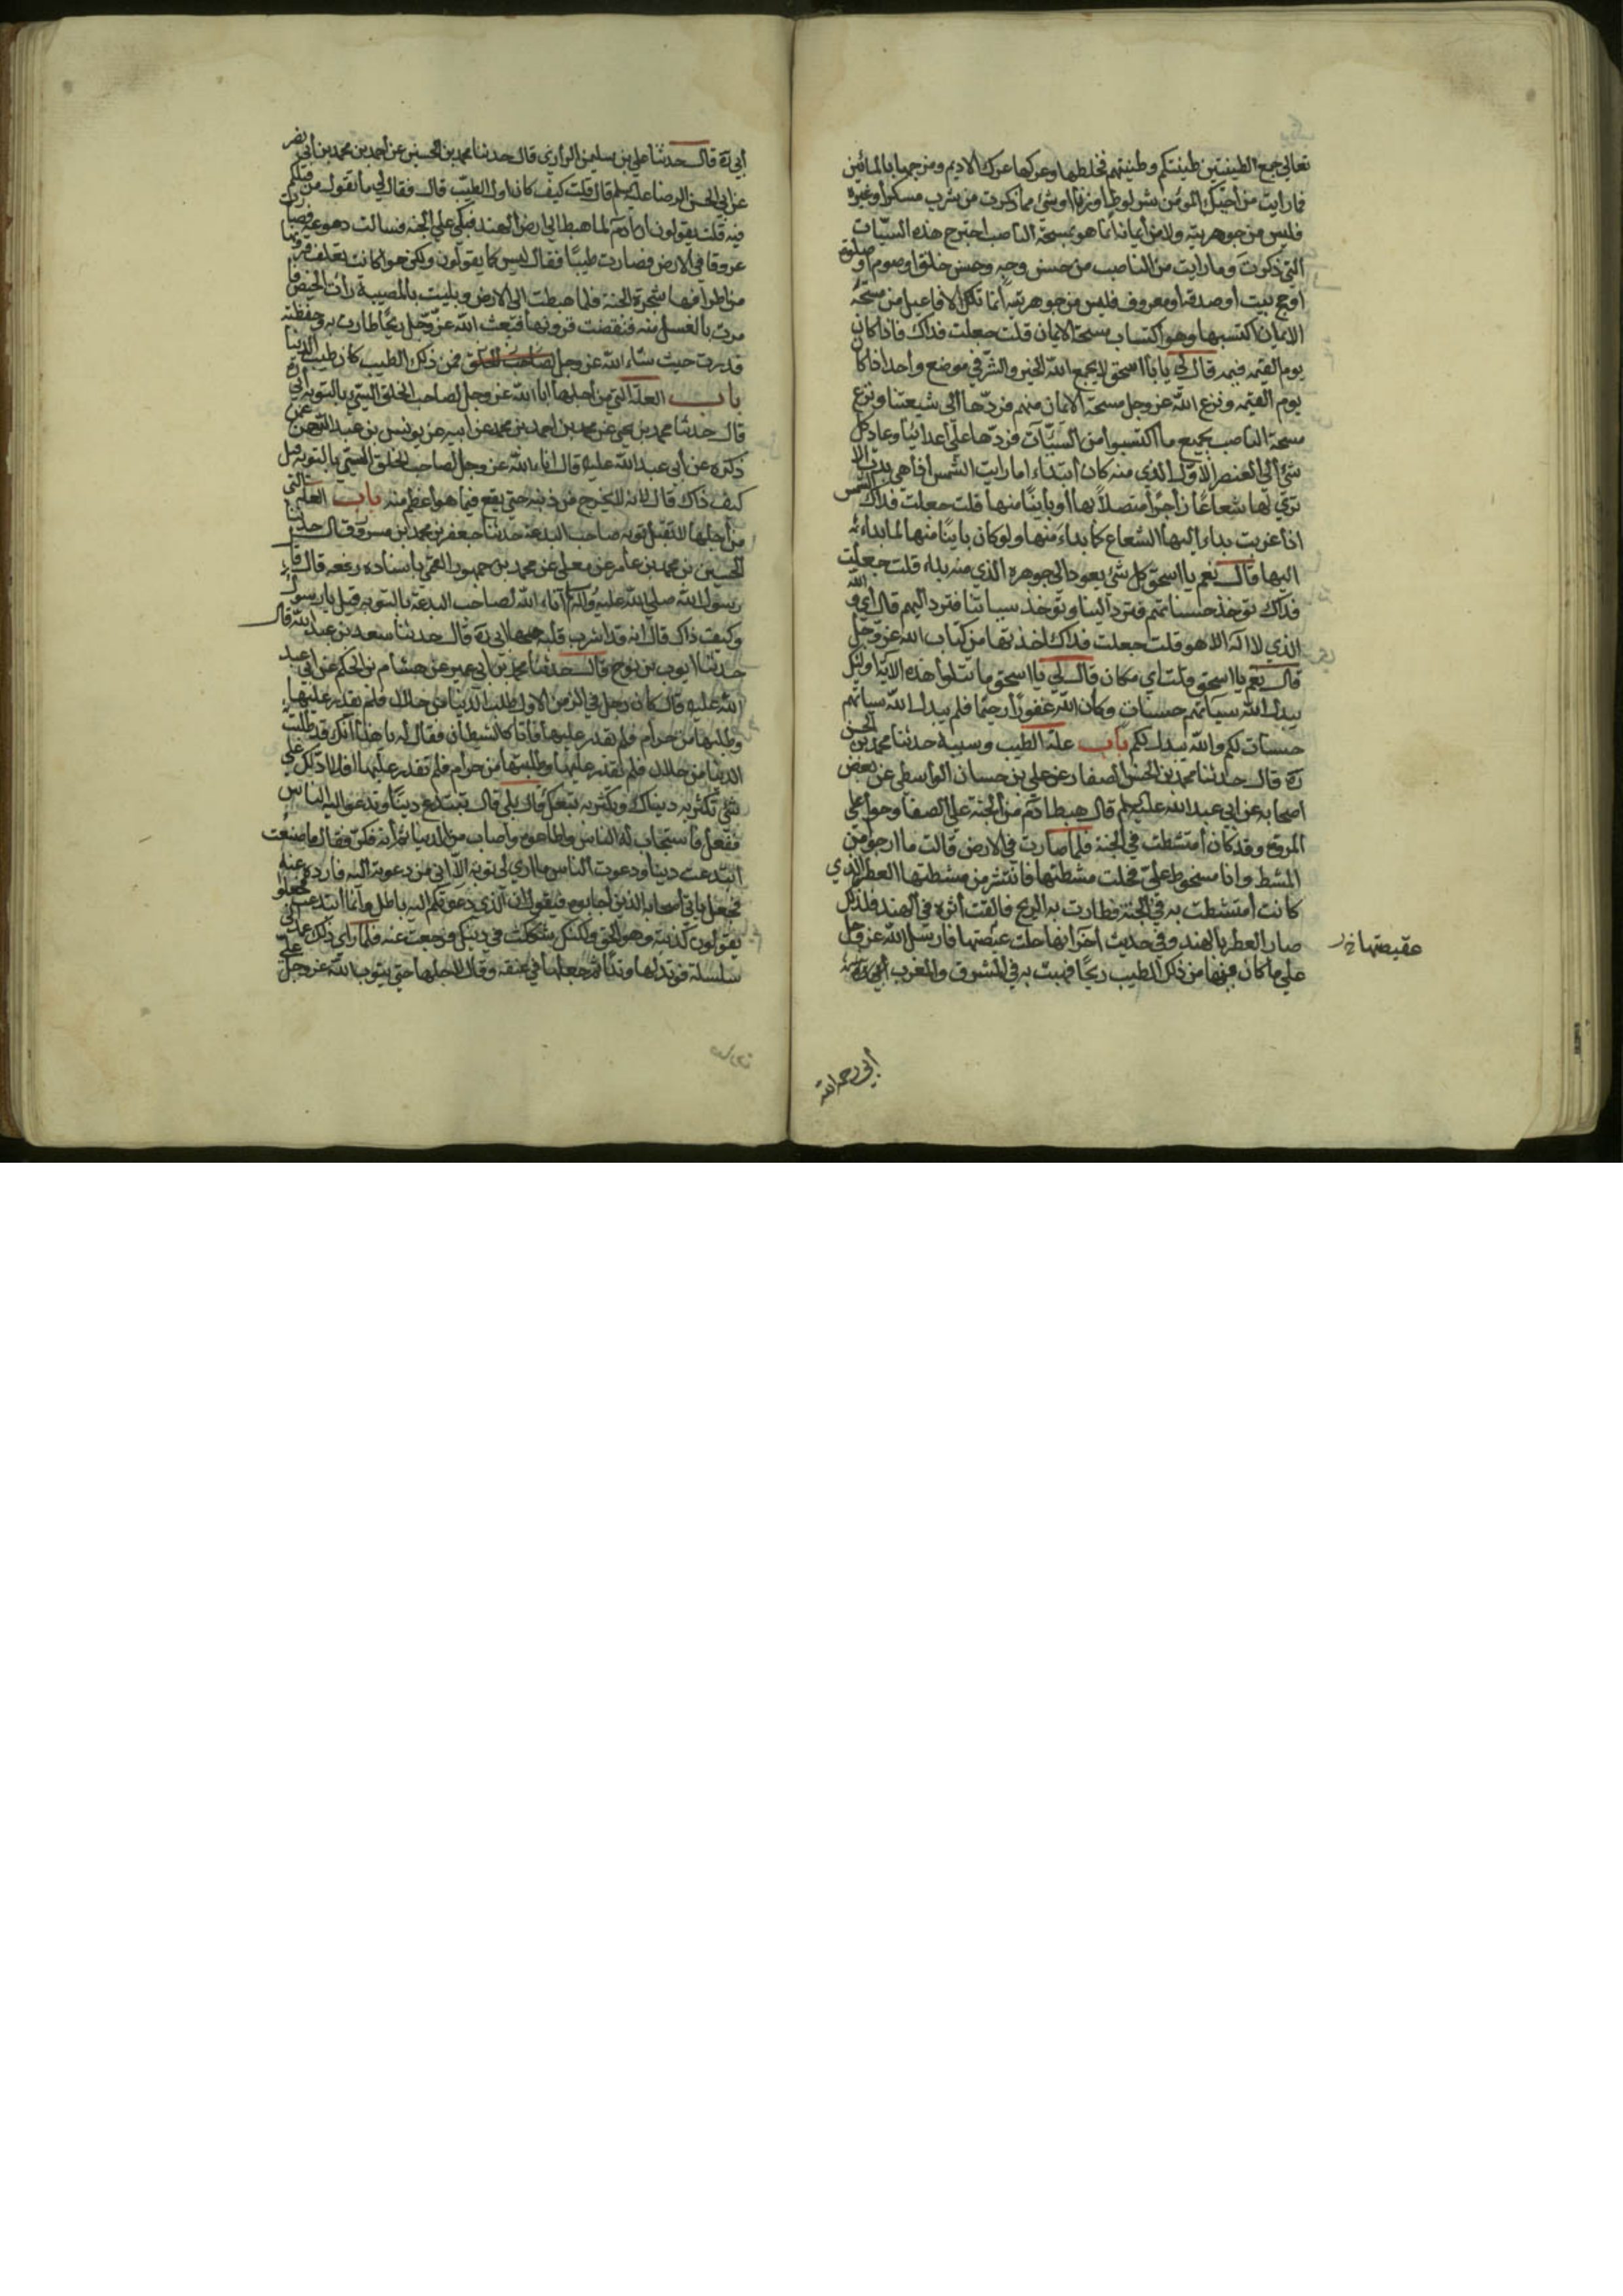 تعالى جمع الطينتين طينتكم وطينتهم فخلطها وعركها عرك الاديم ومزجها بالمائين
فما رايت من اخيك المؤمن من شر لواط او زنا او شئ مما ذكرت من شرب مسكر او غيره
فليس من جوهريته ولا من ايمانه انما هو بمسحة الناصب اجترح هذه السيّات
التي ذكرت وما رايت من الناصب من حسن وجه وحسن خلق او صوم او صلوة
او حج بيت او صدقه او معروف فليس من جوهريته انما تلك الافاعيل من مسحة
الايمان اكتسبها وهو اكتساب مسحة الايمان قلت جعلت فداك فاذا كان
يوم القيمه فمه قال لي يا با اسحق لا يجمع الله الخير والشر في موضع واحد اذا كان
يوم القيمه ونزع الله عز وجل مسحة الايمان منهم فردّها الى شيعتنا ونزع
مسحة الناصب بجميع ما اكتسبوا من السيّآت فردّها على اعدائنا وعاد كل
شئ الى العنصر الاوّل الذي منه كان ابتداء اما رايت الشمس اذا هي بدت الا
ترى لها شعاعًا زاجرًا متصلاً بها او باينًا منها قلت جعلت فداك الشمس
اذا غربت بداء اليها الشعاع كما بداء منها ولو كان باينًا منها لما بداء
اليها قال نعم يا اسحق كل شئ يعود الى جوهره الذي منه بداء قلت جعلت
فداك تؤخذ حسناتهم فترد الينا وتؤخذ سياتنا فترد اليهم قال اي والله
الذي لا اله الا هو قلت جعلت فداك اخذتها من كتاب الله عز وجل
قال نعم يا اسحق قلت اي مكان قال لي يا اسحق ما تتلوا هذه الاية اولئك
يبدل الله سياتهم حسنات وكان الله غفورًا رحيمًا فلم يبدل الله سياتهم
حسنات لكم والله يبدل لكم باب علة الطيب وسببه حدثنا محمد بن الحسن
ره قال حدثنا محمد بن الحسن الصفار عن علي بن حسان الواسطي عن بعض
اصحابه عن ابي عبد الله عليه السلم قال هبط ادم من الجنة على الصفا وحوا على
المروة وقد كان امتشطت في الجنة فلما صارت في الارض قالت ما ارجو من
المشط وانا مسخوط عليّ فحلت مشطتها فانتثر من مشطتها العطر الذي
كانت امتشطت به في الجنة فطارت به الريح فالقت اثره في الهند فلذلك
صار العطر بالهند وفي حديث اخر انها حلت عقيصتها فارسل الله عز وجل
عقيصتها خ ر
على ما كان فيها من ذلك الطيب ريحًا فهبت به في المشرق والمغرب ابي ره
ابي رحمه الله
ابي ره قال حدثنا علي بن سليمن الرازي قال حدثنا محمد بن الحسين عن احمد بن محمد بن ابي نصر
عن ابي الحسن الرضا عليه السلم قال قلت كيف كان اول الطيب قال فقال لي ما تقول من قبلكم
فيه قلت يقولون ان ادم لما هبط الى ارض الهند فبكى على الجنة فسالت دموعه فصارت
عروقا في الارض فصارت طيبًا فقال ليس كما يقولون ولكن حوا كانت تغلف قرونها
من اطراف شجرة الجنة فلما هبطت الى الارض وبليت بالمصيبة رات الحيض فا
مرت بالغسل منه فنقضت قرونها فبعث الله عز وجل ريحًا طارت به وخفظته
فذرت حيث شاء الله عز وجل فمن ذلك الطيب كان طيب الدنيا
باب العلة التي من اجلها ابا الله عز وجل لصاحب الخلق السيّئ بالتوبه ابي ره
قال حدثنا محمد بن يحيى عن محمد بن احمد بن محمد عن ابيه عن يونس بن عبد الرحمن عن
ذكره عن ابي عبد الله عليه قال ابا الله عز وجل لصاحب الخلق السيّئ بالتوبه قيل
كيف ذاك قال لانه لا يخرج من ذنب حتى يقع فيما هو اعظم منه باب العلة التي
من اجلها لا تقبل توبة صاحب البدعة حدثنا جعفر بن محمد بن مسرور قال حدثنا
الحسين بن محمد بن عامر عن معلى عن محمد بن جمهور العمّي باسناده رفعه قال قال
رسول الله صلى الله عليه واله ابا الله لصاحب البدعة بالتوبه قيل يا رسول الله
وكيف ذاك قال انه قد اشرب قلبه حبها ابي ره قال حدثنا سعد بن عبد الله قال
حدثنا ايوب بن نوح قال حدثنا محمد بن ابي عمير عن هشام بن الحكم عن ابي عبد
الله عليه قال كان رجل في الزمن الاول طلب الدنيا من حلال فلم يقدر عليها
وطلبها من حرام فلم يقدر عليها فاتاه الشيطان فقال له يا هذا انك قد طلبت
الدنيا من حلال فلم تقدر عليها وطلبتها من حرام فلم تقدر عليها افلا ادلك على
شئ تكثر به دنياك ويكثر به تبعك قال بلى قال تبتدع دينًا وتدعو اليه الناس
ففعل فاستجاب له الناس واطاعوه واصاب من الدنيا ثم انه فكر فقال ما صنعت
ابتدعت دينا ودعوت الناس ما ارى لي توبة الا ان اتي من دعوته اليه فارده عنه
فجعل ياتي اصحابه الذين اجابوه فيقول ان الذي دعوتكم اليه باطل وانما ابتدعته فجعلوا
يقولون كذبت وهو الحق ولكنك شككت في دينك فرجعت عنه فلما راى ذلك عمد الى
سلسلة فوتد لها وتدًا ثم جعلها في عنقه وقال لا احلها حتى يتوب الله عز وجل عليّ